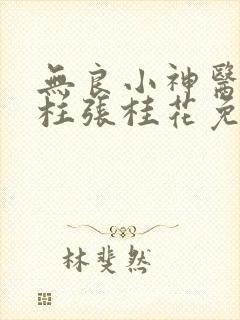 無良小神醫
柱張桂花免
林斐然